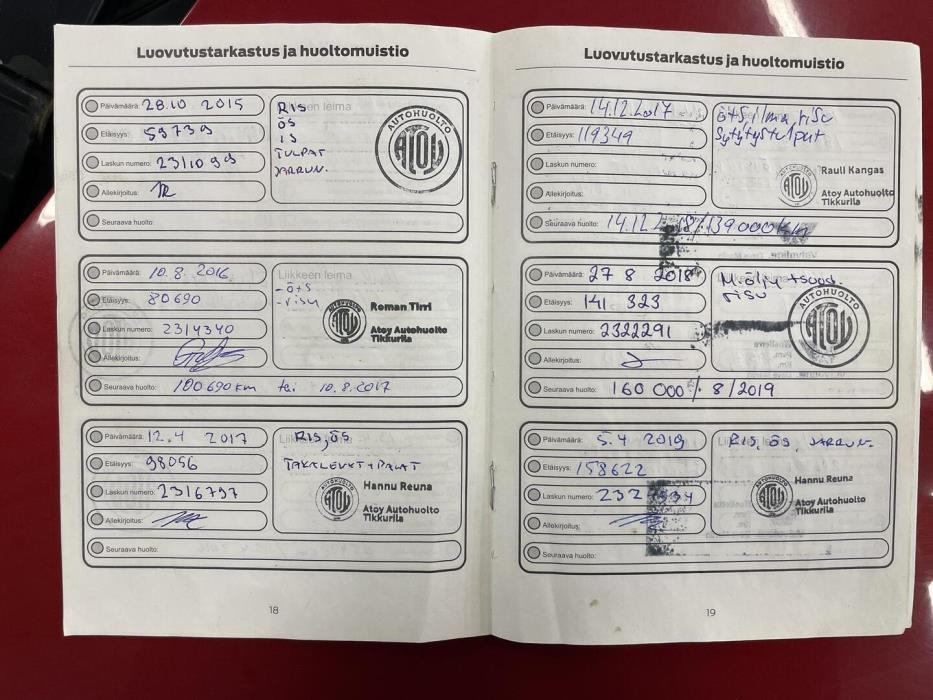 Luovutustarkastus ja huoltomuistio
Päivämäärä: 28.10 2015
Etäisyys: 59739
Laskun numero: 2311099
Allekirjoitus:
Seuraava huolto:
Liikkeen leima
RIS
ÖS
IS
TULPAT
JARRUN.
AUTOHUOLTO
ATOY
Päivämäärä: 10.8. 2016
Etäisyys: 80690
Laskun numero: 2314340
Allekirjoitus:
Seuraava huolto: 100690km tai 10.8.2017
Liikkeen leima
-ö+s
-risu
ATOY
Roman Tirri
Atoy Autohuolto
Tikkurila
Päivämäärä: 12.4 2017
Etäisyys: 98056
Laskun numero: 2316797
Allekirjoitus:
Seuraava huolto:
RIS, ÖS
TAKALEVYT+PALAT
ATOY
Hannu Reuna
Atoy Autohuolto
Tikkurila
18
Luovutustarkastus ja huoltomuistio
Päivämäärä: 14.12.2017
Etäisyys: 119349
Laskun numero:
Allekirjoitus:
Seuraava huolto: 14.12 /139000km
ö+s, ilma, risu
Sytytystulpat
ATOY
Rauli Kangas
Atoy Autohuolto
Tikkurila
Päivämäärä: 27 8 2018
Etäisyys: 141 323
Laskun numero: 2322291
Allekirjoitus:
Seuraava huolto: 160 000 / 8/2019
M.öljy+suod.
risu
AUTOHUOLTO
ATOY
Päivämäärä: 5.4 2019
Etäisyys: 158622
Laskun numero:
Allekirjoitus:
Seuraava huolto:
RIS, ÖS JARRUN.
ATOY
Hannu Reuna
Atoy Autohuolto
Tikkurila
19